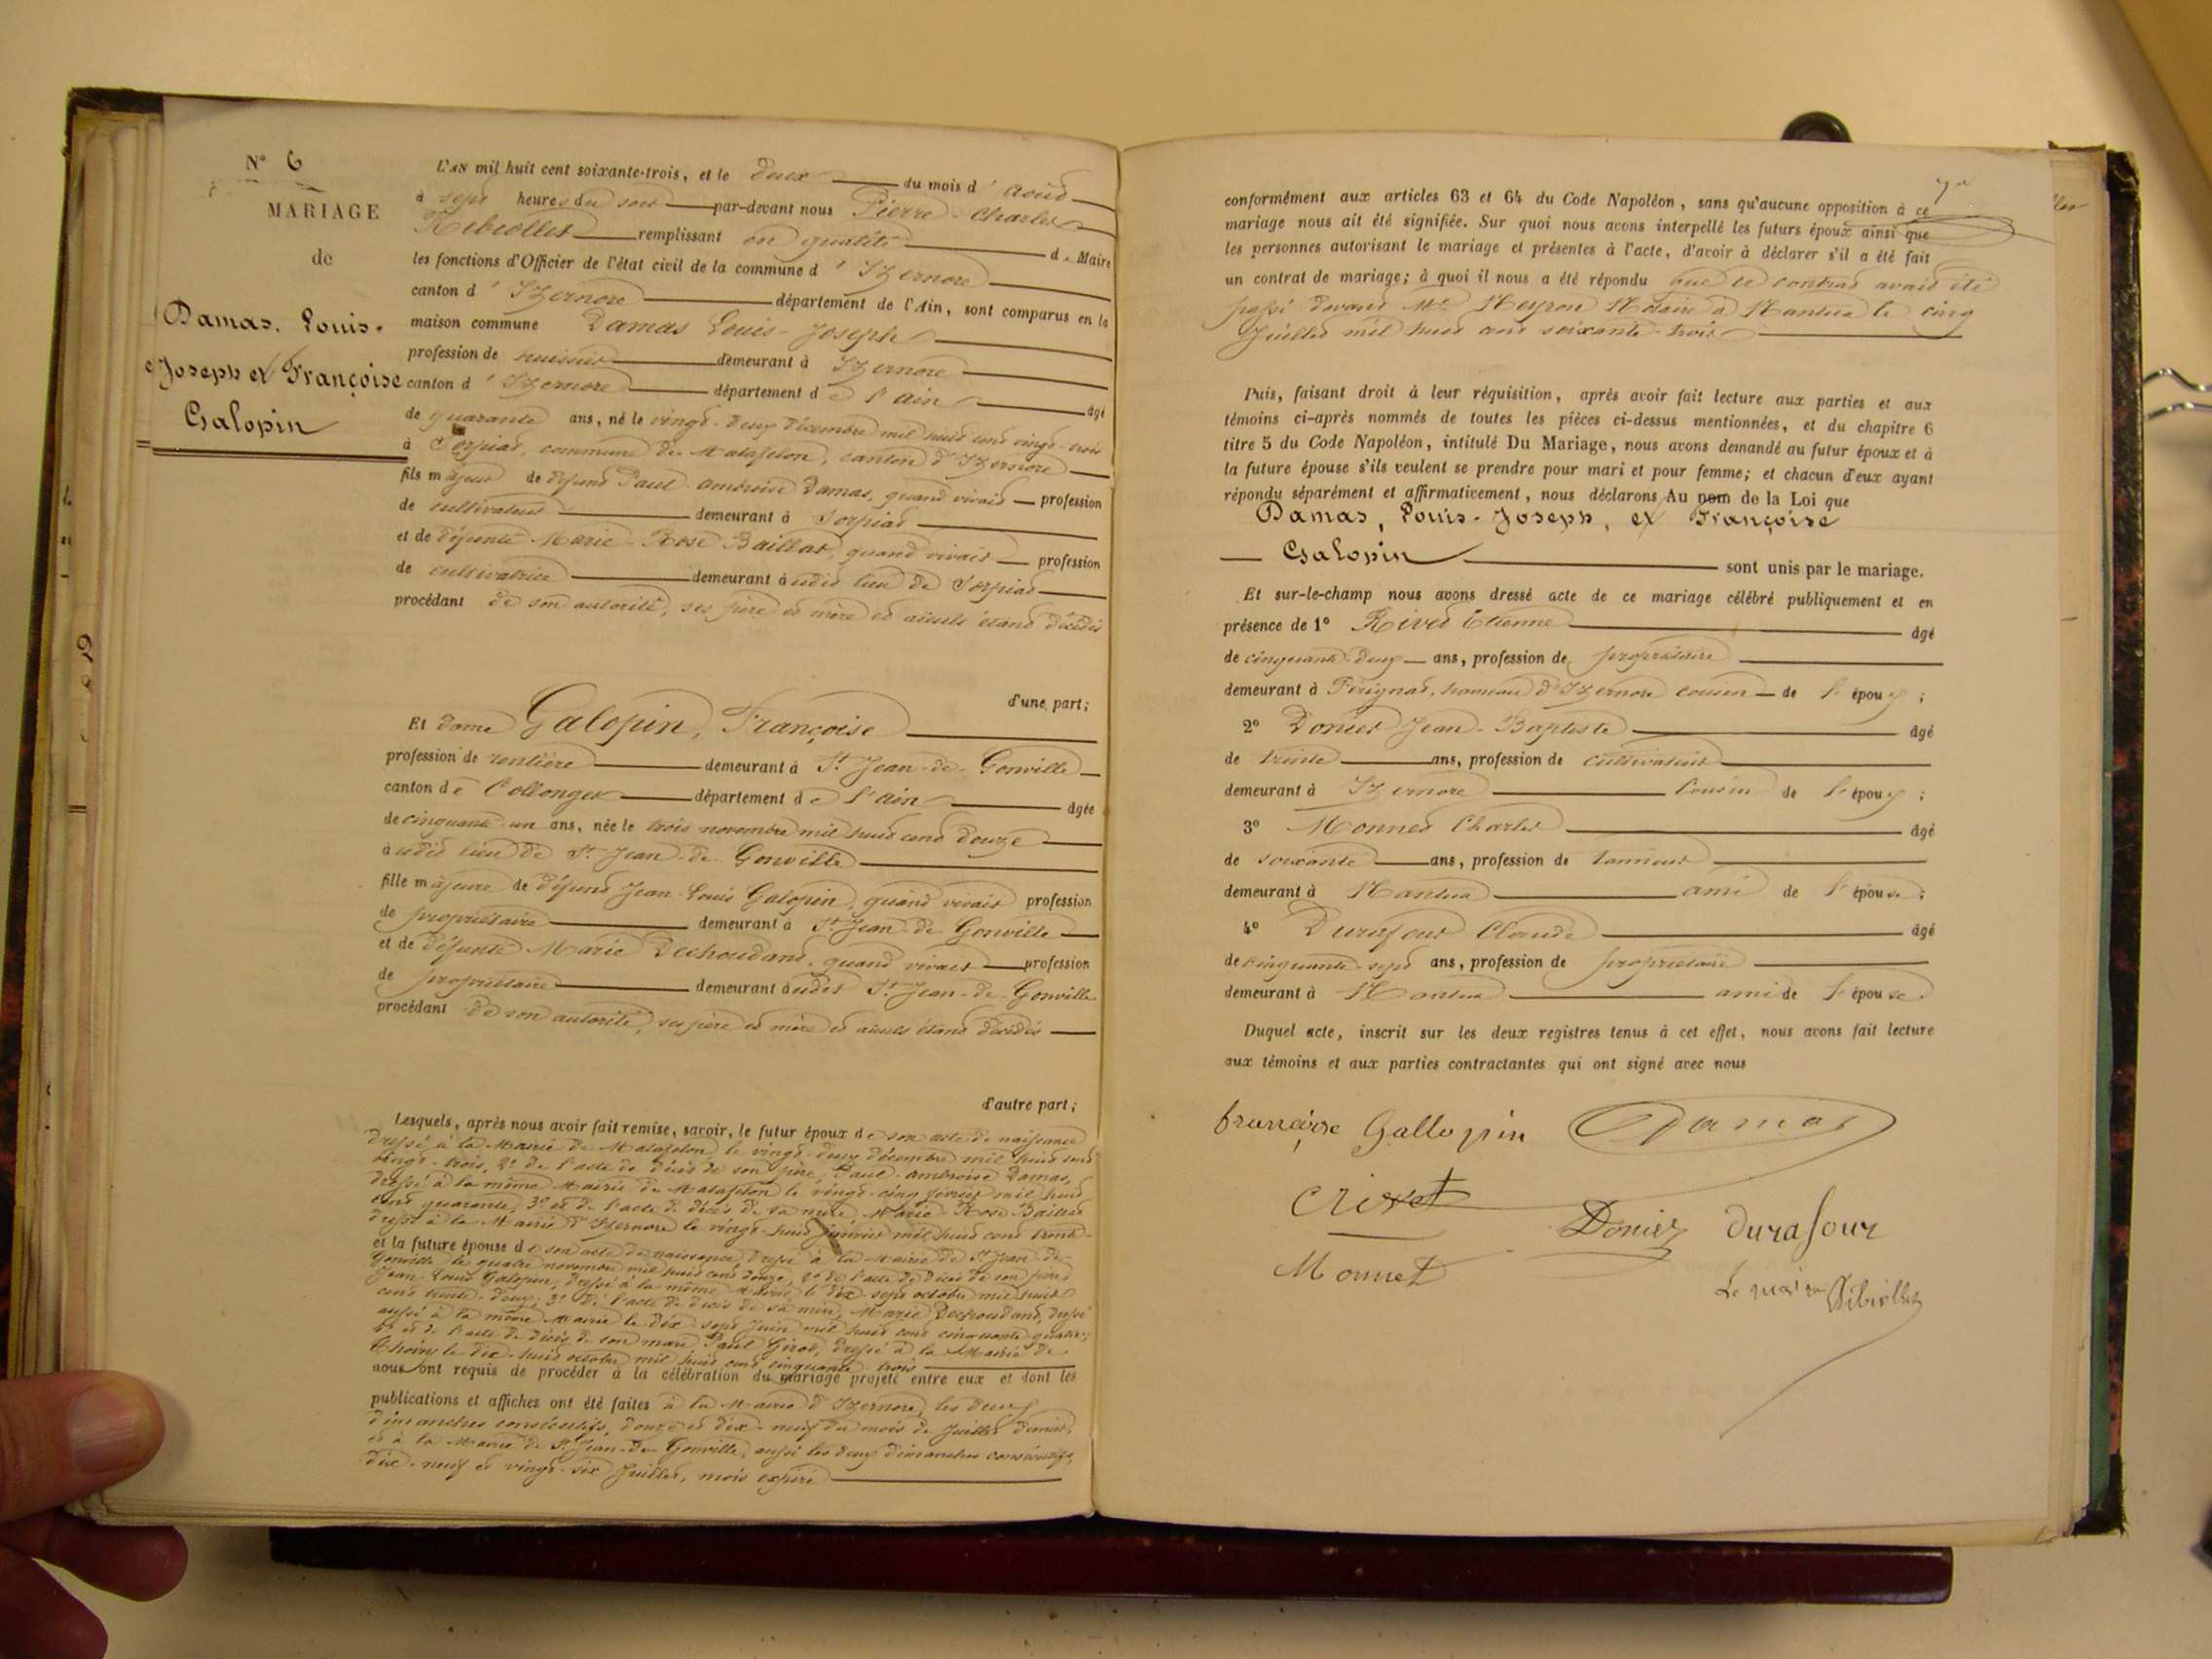 N° 6
MARIAGE
de
Damas, Louis-
Joseph et Françoise
Galopin
L'AN mil huit cent soixante-trois, et le deux du mois d'août
à sept heures du soir par-devant nous Pierre-Charles
remplissant en qualité de Maire
les fonctions d'Officier de l'état civil de la commune d'Izernore
canton d'Izernore département de l'Ain, sont comparus en la
maison commune Damas Louis-Joseph
profession de huissier demeurant à Izernore
canton d'Izernore département de l'ain âgé
de quarante ans, né le vingt-deux décembre mil huit cent vingt-trois
à Corpiat, commune de Matafelon, canton d'Izernore
fils majeur de défunt Paul-ambroise Damas, quand vivait profession
de cultivateur demeurant à Corpiat
et de défunte Marie-Rose Baillat, quand vivait profession
de cultivatrice demeurant audit lieu de Corpiat
procédant de son autorité, ses père et mère et aïeuls étant décédés
d'une part;
Et dame Galopin, Françoise
profession de rentière demeurant à St Jean-de-Gonville
canton de Collonges département de l'ain âgée
de cinquante-un ans, née le trois novembre mil huit cent douze
audit lieu de St Jean-de-Gonville
fille majeure de défunt Jean-Louis Galopin, quand vivait profession
de propriétaire demeurant à St Jean-de-Gonville
et de défunte Marie Dechoudans, quand vivait profession
de propriétaire demeurant audit St Jean-de-Gonville
procédant de son autorité, ses père et mère et aïeuls étant décédés
d'autre part;
Lesquels, après nous avoir fait remise, savoir, le futur époux de son acte de naissance
dressé à la Mairie de Matafelon, le vingt-deux décembre mil huit cent
vingt-trois, 2° de l'acte de décès de son père, Paul-ambroise Damas,
dressé à la même Mairie de Matafelon le vingt-cinq février mil huit
cent quarante, 3° et de l'acte de décès de sa mère, Marie-Rose Baillat
dressé à la Mairie d'Izernore le vingt-huit janvier mil huit cent trente-
et la future épouse de son acte de naissance, dressé à la Mairie de St Jean-de-
Gonville le quatre novembre mil huit cent douze, 2° de l'acte de décès de son père
Jean-Louis Galopin, dressé à la même Mairie le dix-sept octobre mil huit
cent trente-deux, 3° de l'acte de décès de sa mère, Marie Dechoudans, dressé
aussi à la même Mairie le dix-sept Juin mil huit cent cinquante-quatre,
4° et de l'acte de décès de son mari Paul Girod, dressé à la Mairie de
Thoiry le dix-huit octobre mil huit cent cinquante-trois
nous ont requis de procéder à la célébration du mariage projeté entre eux et dont les
publications et affiches ont été faites à la Mairie d'Izernore, les deux
dimanches consécutifs, douze et dix-neuf du mois de Juillet dernier,
et à la Mairie de St Jean-de-Gonville, aussi les deux dimanches consécutifs,
dix-neuf et vingt-six Juillet, mois expiré
conformément aux articles 63 et 64 du Code Napoléon, sans qu'aucune opposition à ce
mariage nous ait été signifiée. Sur quoi nous avons interpellé les futurs époux ainsi que
les personnes autorisant le mariage et présentes à l'acte, d'avoir à déclarer s'il a été fait
un contrat de mariage; à quoi il nous a été répondu que le contrat avait été
passé devant Me Neyron Notaire à Nantua le cinq
Juillet mil huit cent soixante-trois
Puis, faisant droit à leur réquisition, après avoir fait lecture aux parties et aux
témoins ci-après nommés de toutes les pièces ci-dessus mentionnées, et du chapitre 6
titre 5 du Code Napoléon, intitulé Du Mariage, nous avons demandé au futur époux et à
la future épouse s'ils veulent se prendre pour mari et pour femme; et chacun d'eux ayant
répondu séparément et affirmativement, nous déclarons Au nom de la Loi que
Damas, Louis-Joseph, et Françoise
Galopin sont unis par le mariage.
Et sur-le-champ nous avons dressé acte de ce mariage célébré publiquement et en
présence de 1° Rivet Étienne âgé
de cinquante-deux ans, profession de propriétaire
demeurant à Pérignat, hameau d'Izernore cousin de l'époux;
2° Donier Jean-Baptiste âgé
de trente ans, profession de cultivateur
demeurant à Izernore Cousin de l'époux;
3° Monnet Charles âgé
de soixante ans, profession de tanneur
demeurant à Nantua ami de l'épouse;
4° Durafour Claude âgé
de cinquante-sept ans, profession de propriétaire
demeurant à Nantua ami de l'épouse
Duquel acte, inscrit sur les deux registres tenus à cet effet, nous avons fait lecture
aux témoins et aux parties contractantes qui ont signé avec nous
françoise Gallopin Damas
Rivet
Donier durafour
Monnet
Le maire